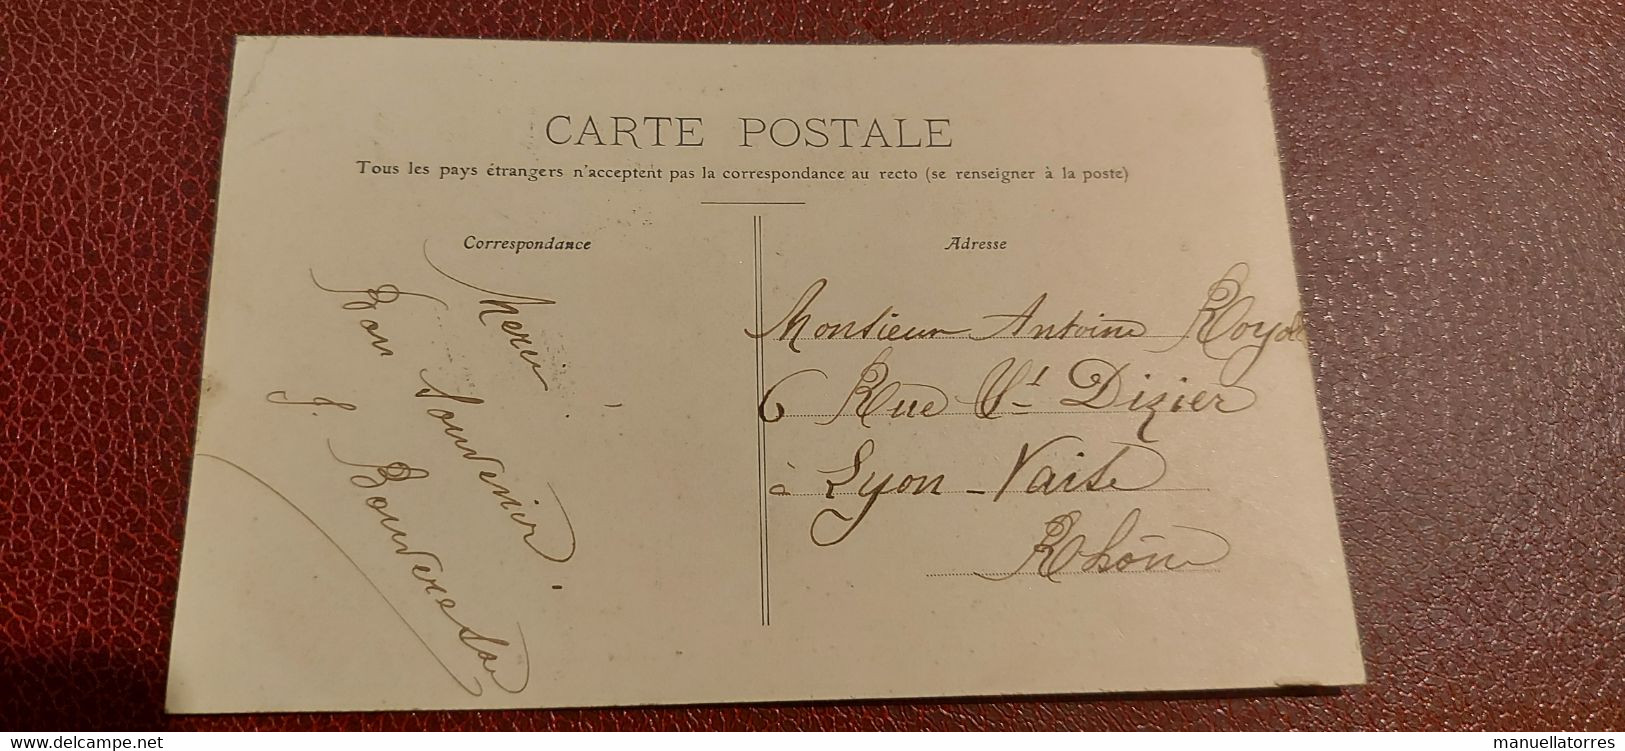 CARTE POSTALE
Tous les pays étrangers n'acceptent pas la correspondance au recto (se renseigner à la poste)
Correspondance
Merci
Bon Souvenir.
J.
Adresse
Monsieur Antoine
6 Rue St Dizier
à Lyon - Vaise
Rhône
www.delcampe.net
manuellatorres